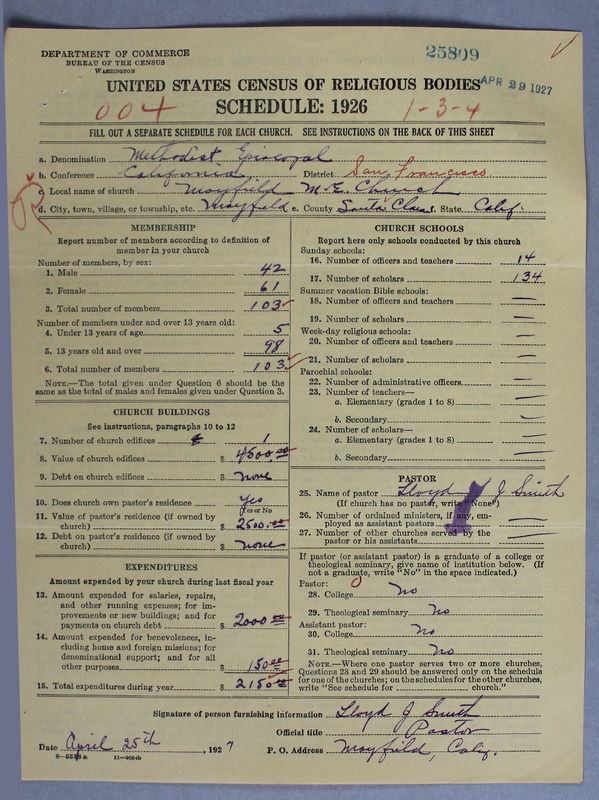 DEPARTMENT OF COMMERCE
BUREAU OF THE CENSUS
WASHINGTON
25809
APR 29 1927
UNITED STATES CENSUS OF RELIGIOUS BODIES
004
SCHEDULE: 1926
1-3-4
FILL OUT A SEPARATE SCHEDULE FOR EACH CHURCH. SEE INSTRUCTIONS ON THE BACK OF THIS SHEET
a. Denomination Methodist Episcopal
b. Conference California District San Francisco
c. Local name of church Mayfield M.E. Church
d. City, town, village, or township, etc. Mayfield e. County Santa Clara f. State Calif.
MEMBERSHIP
Report number of members according to definition of
member in your church
Number of members, by sex:
1. Male 42
2. Female 61
3. Total number of members 103
Number of members under and over 13 years old:
4. Under 13 years of age 5
5. 13 years old and over 98
6. Total number of members 103
NOTE.—The total given under Question 6 should be the
same as the total of males and females given under Question 3.
CHURCH BUILDINGS
See instructions, paragraphs 10 to 12
7. Number of church edifices 1
8. Value of church edifices $ 4500.00
9. Debt on church edifices $ none
10. Does church own pastor's residence Yes
Yes or No
11. Value of pastor's residence (if owned by
church) $ 2500.00
12. Debt on pastor's residence (if owned by
church) $ none
EXPENDITURES
Amount expended by your church during last fiscal year
13. Amount expended for salaries, repairs,
and other running expenses; for im-
provements or new buildings; and for
payments on church debt $ 2000.00
14. Amount expended for benevolences, in-
cluding home and foreign missions; for
denominational support; and for all
other purposes $ 150.00
15. Total expenditures during year $ 2150.00
CHURCH SCHOOLS
Report here only schools conducted by this church
Sunday schools:
16. Number of officers and teachers 14
17. Number of scholars 134
Summer vacation Bible schools:
18. Number of officers and teachers —
19. Number of scholars —
Week-day religious schools:
20. Number of officers and teachers —
21. Number of scholars —
Parochial schools:
22. Number of administrative officers —
23. Number of teachers—
a. Elementary (grades 1 to 8) —
b. Secondary —
24. Number of scholars—
a. Elementary (grades 1 to 8) —
b. Secondary —
PASTOR
25. Name of pastor Lloyd J Smith
(If church has no pastor, write "None")
26. Number of ordained ministers, if any, em-
ployed as assistant pastors —
27. Number of other churches served by the
pastor or his assistants —
If pastor (or assistant pastor) is a graduate of a college or
theological seminary, give name of institution below. (If
not a graduate, write "No" in the space indicated.)
Pastor:
28. College No
29. Theological seminary No
Assistant pastor:
30. College No
31. Theological seminary No
NOTE.—Where one pastor serves two or more churches,
Questions 28 and 29 should be answered only on the schedule
for one of the churches; on the schedules for the other churches,
write "See schedule for church."
Signature of person furnishing information Lloyd J Smith
Official title Pastor
Date April 25th, 1927 P. O. Address Mayfield, Calif.
8—5518a 11—9034b